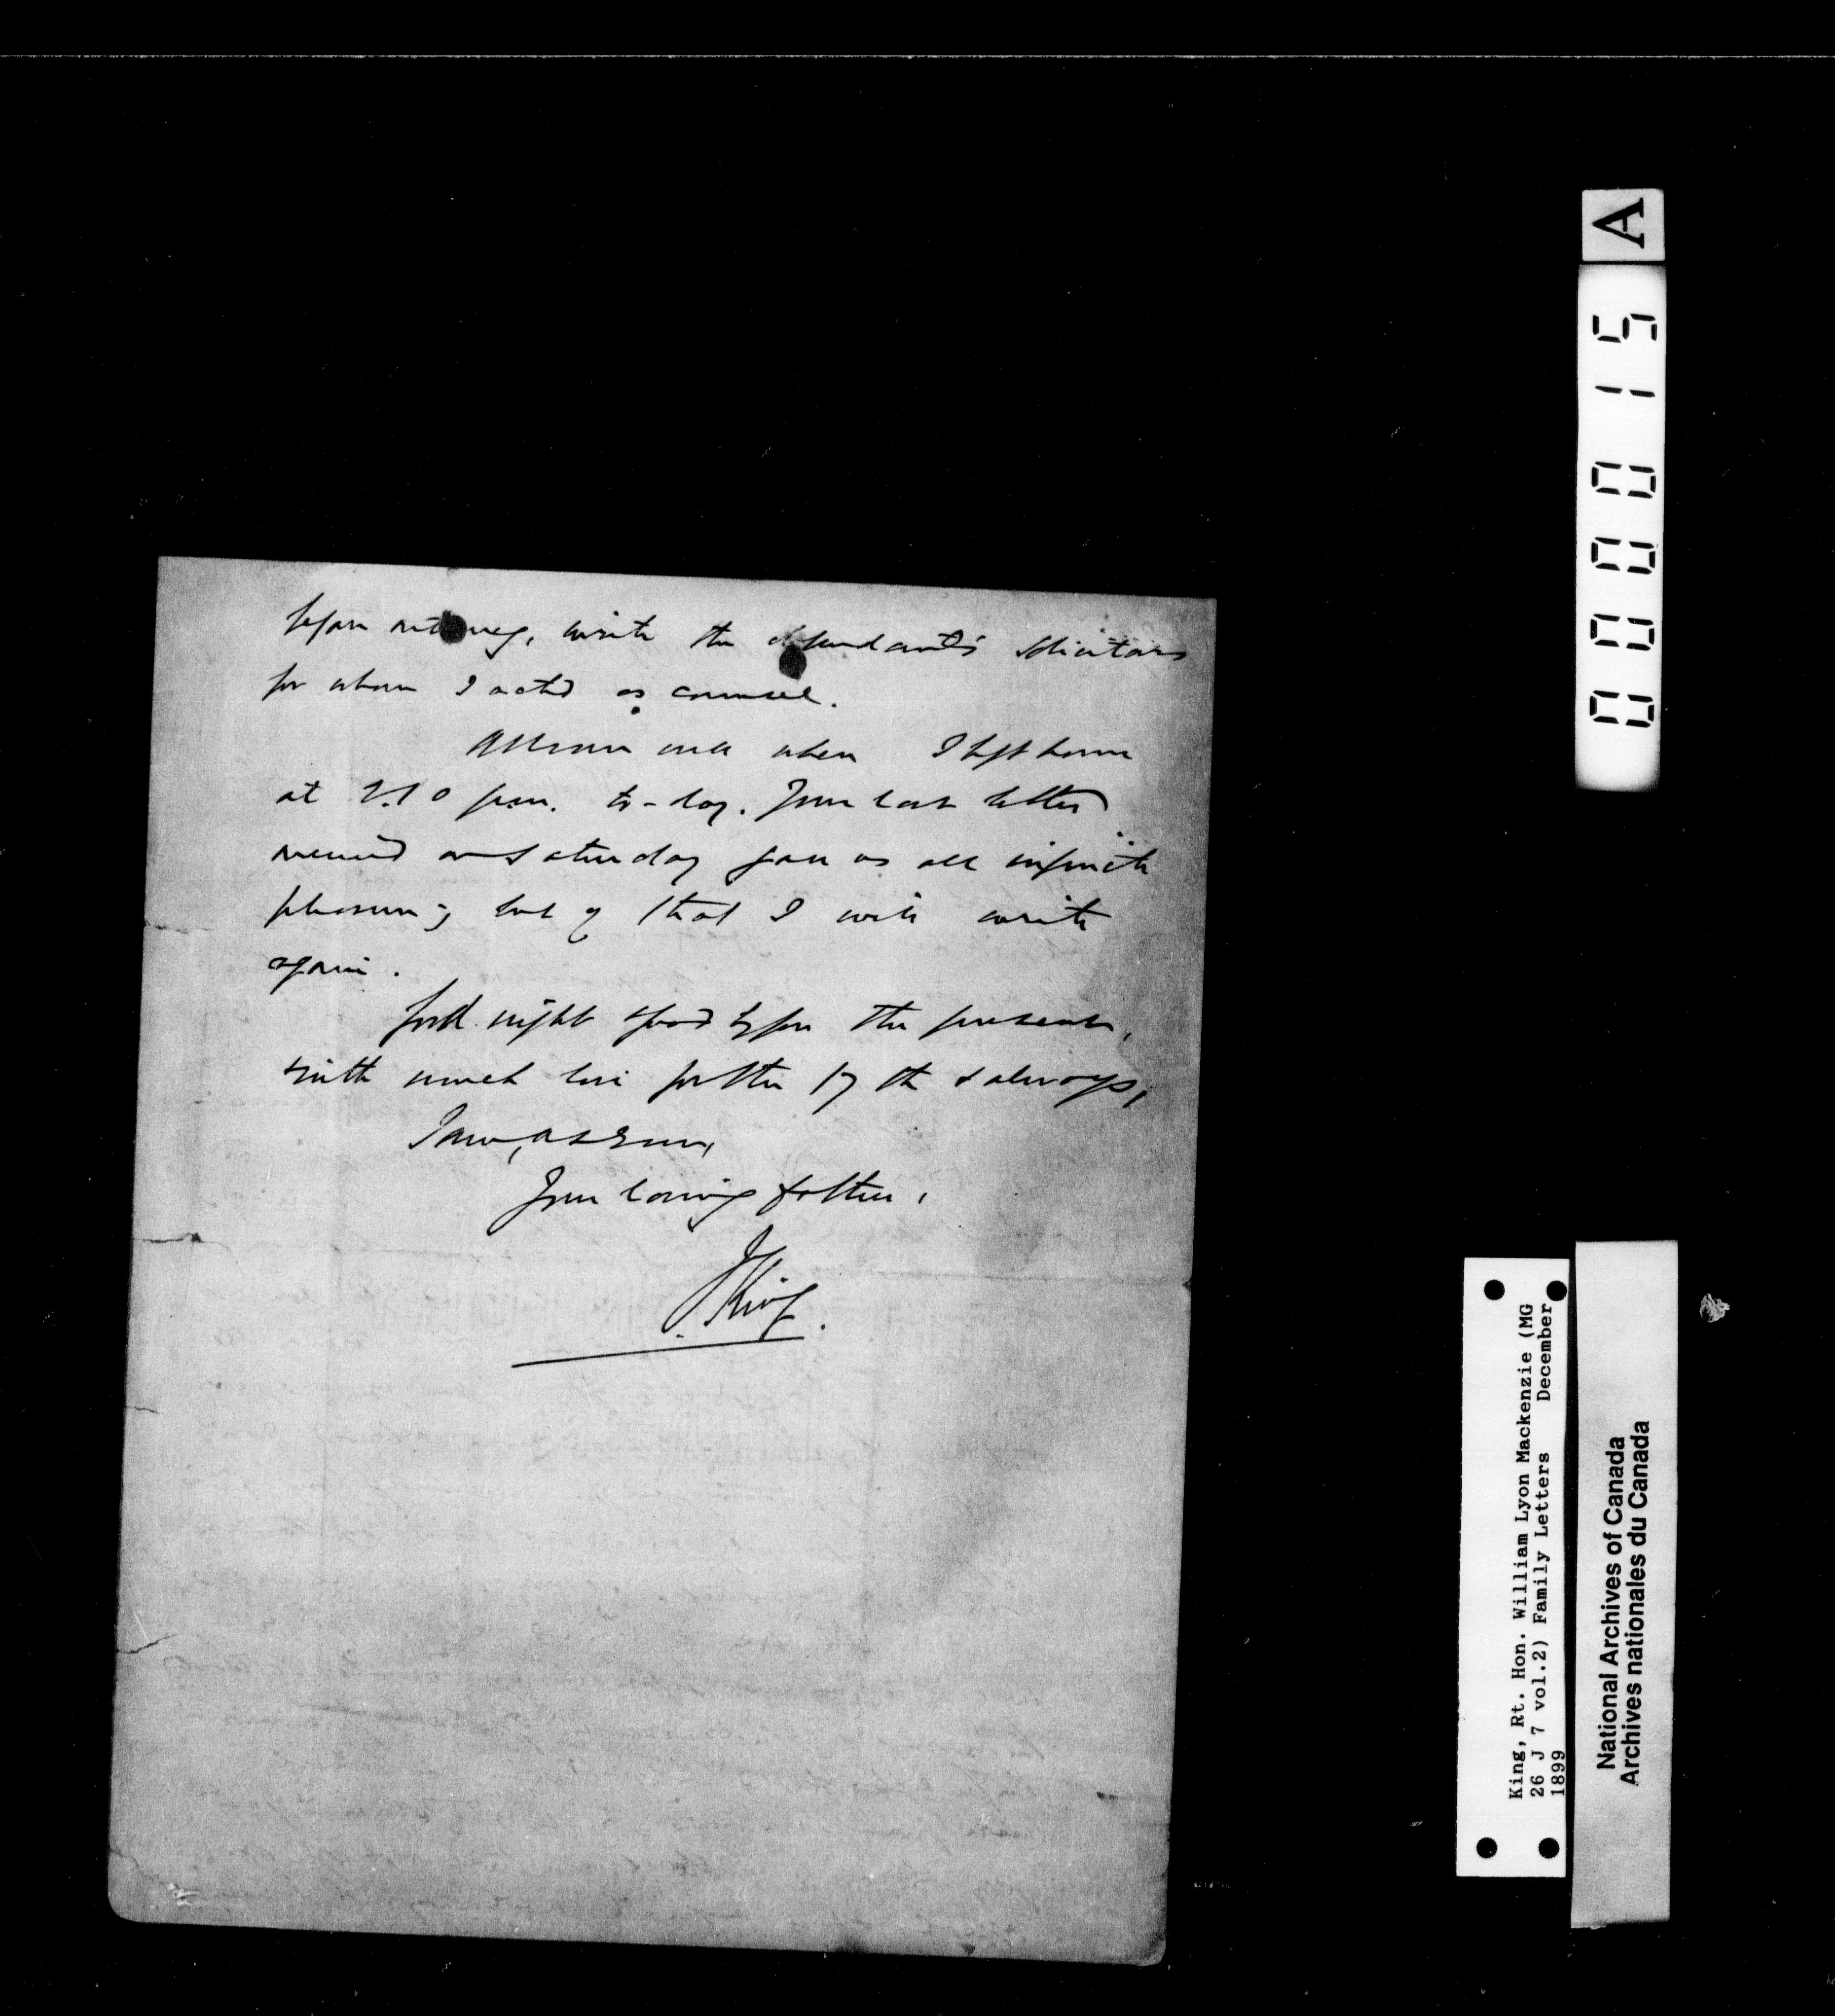 before retiring, write the defendant's solicitors
for whom I acted as counsel.
All were well when I left home
at 2.10 p.m. to-day. Your last letter
received on Saturday gave us all infinite
pleasure; but of that I will write
again.
Good night & good bye for the present,
with much love for the 17th & always,
I am, as ever,
Your loving father,
J King.
A
000015
King, Rt. Hon. William Lyon Mackenzie (MG
26 J 7 vol.2) Family Letters December
1899
National Archives of Canada
Archives nationales du Canada